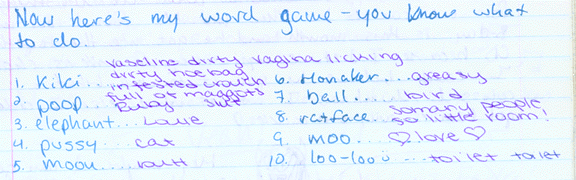 Now here's my word game - you know what
to do.
vaseline dirty vagina licking
1. Kiki... dirty hoebag
infested crouch
full of maggots
2. poop... Ruby slut
3. elephant... Love
4. pussy... cat
5. moon... butt
6. Honaker... greasy
7. ball... bird
8. ratface... so many people
so little room!
9. moo... ♡ love ♡
10. loo-loo... toilet toilet